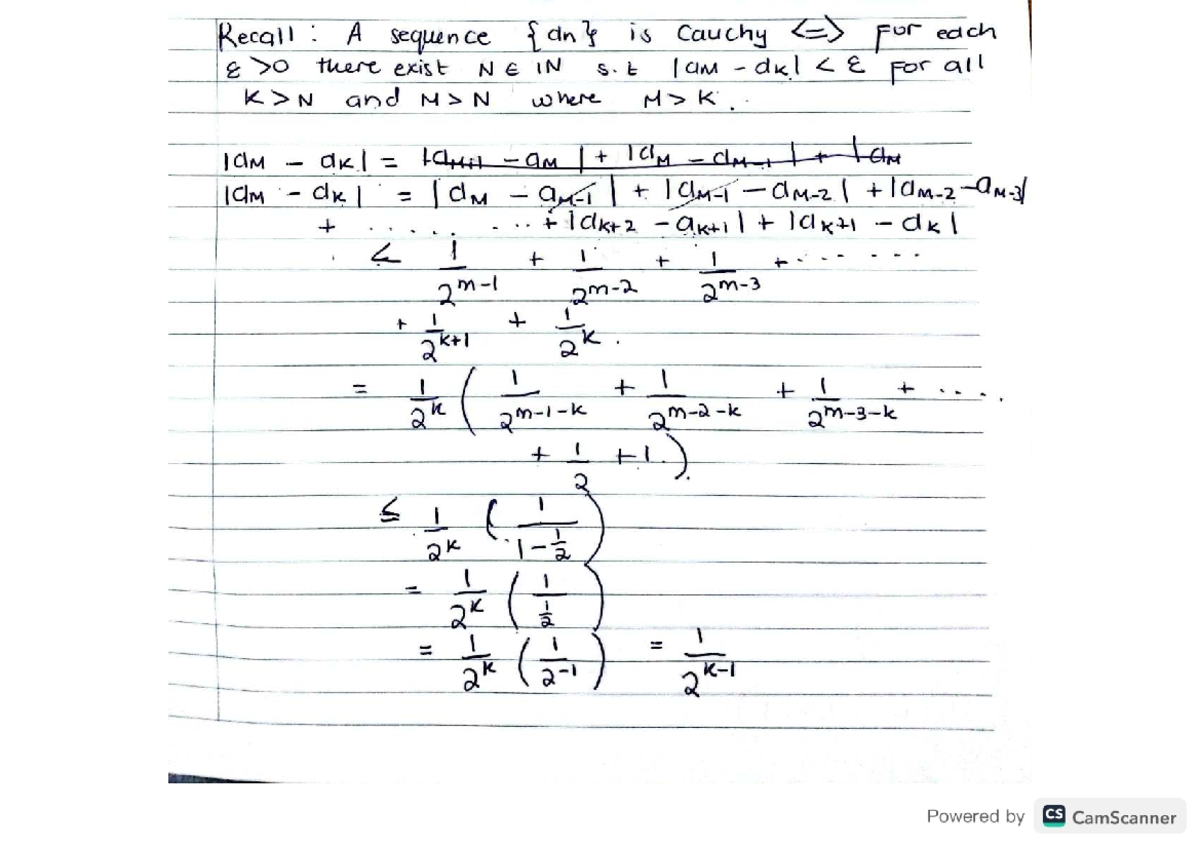 Recall : A sequence {an} is Cauchy <=> For each
ε >0 there exist N ∈ IN s.t |am - ak| < ε for all
K > N and M > N where M > K.
|am - ak| = |am+1 - am| + |am - am-1| + |am
|am - ak| = |am - am-1| + |am-1 - am-2| + |am-2 - am-3|
+ ..... ... + |ak+2 - ak+1| + |ak+1 - ak|
< 1/2^(m-1) + 1/2^(m-2) + 1/2^(m-3) + ......
+ 1/2^(k+1) + 1/2^k .
= 1/2^k ( 1/2^(m-1-k) + 1/2^(m-2-k) + 1/2^(m-3-k) + ....
+ 1/2 + 1. )
≤ 1/2^k ( 1/(1 - 1/2) )
= 1/2^k ( 1/(1/2) )
= 1/2^k ( 1/2^(-1) ) = 1/2^(k-1)
Powered by CS CamScanner